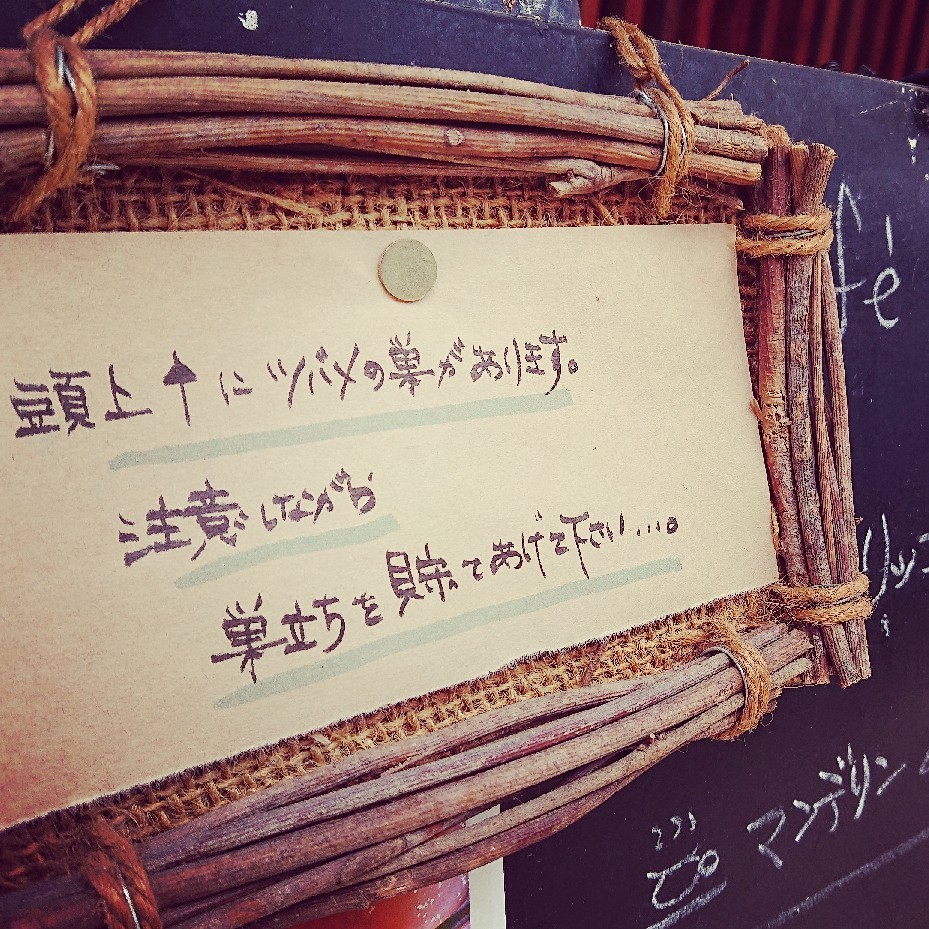 頭上↑にツバメの巣があります。
注意しながら
巣立ちを貯てあげて下さい....。
fé
リッ
マンデリン